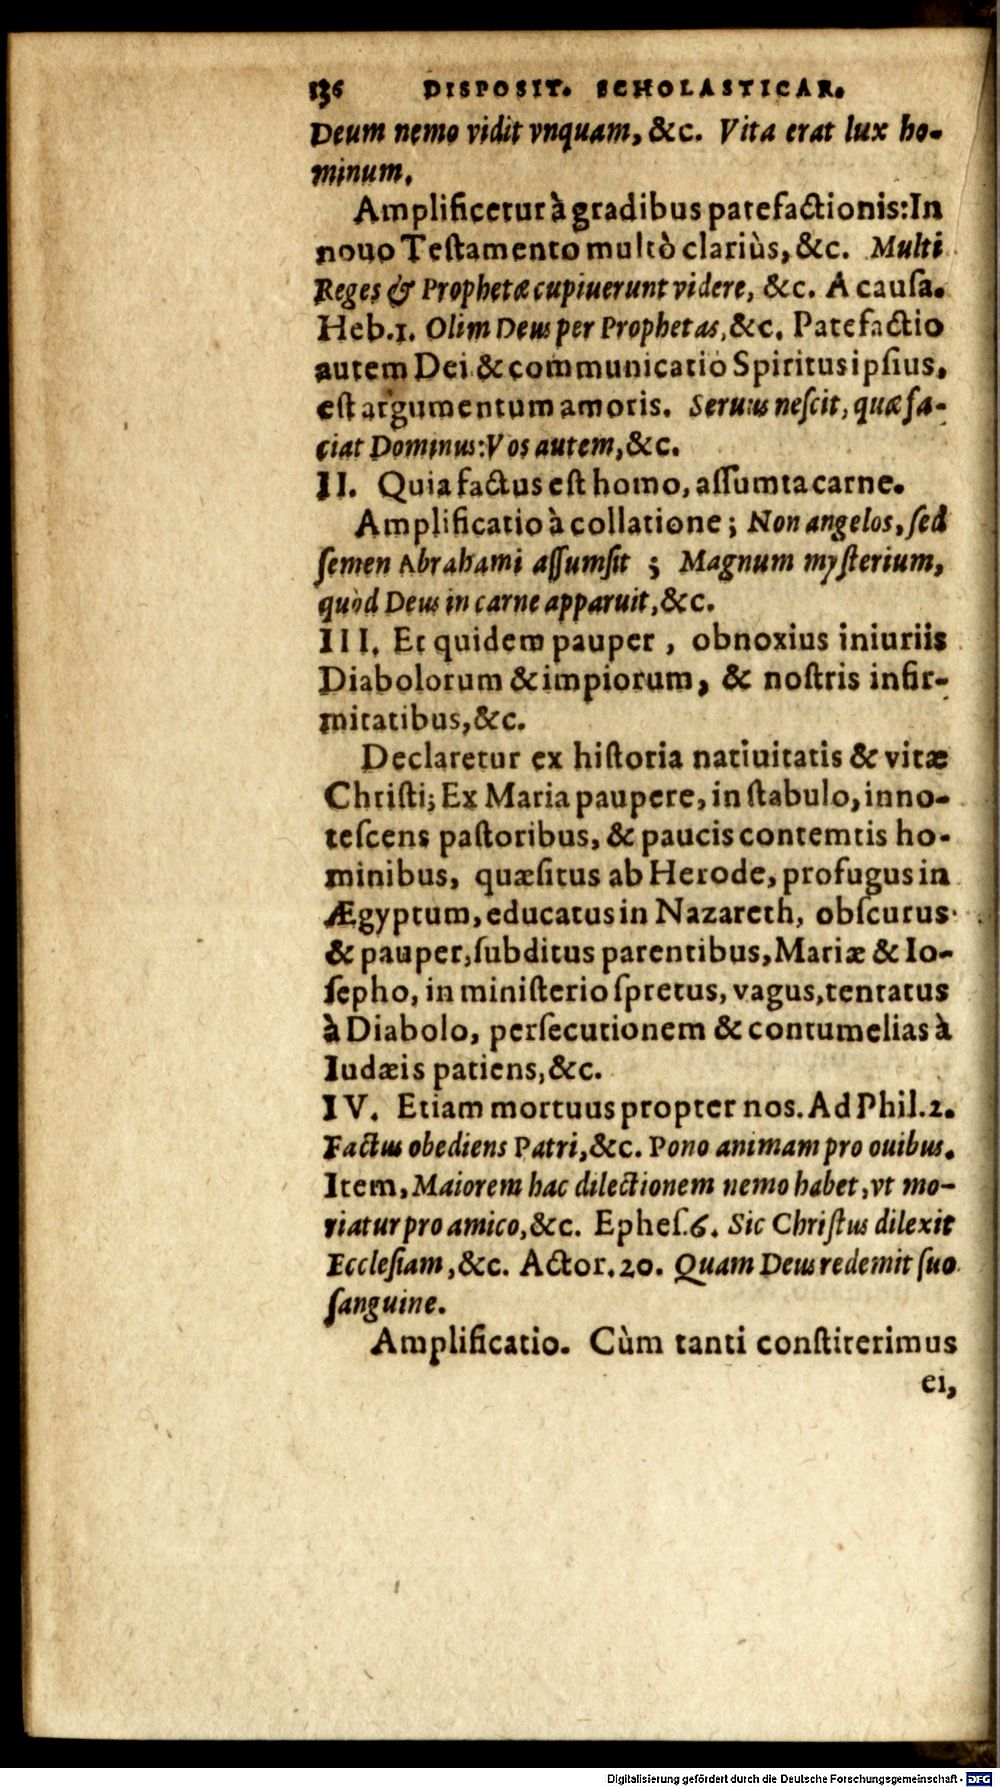 136 DISPOSIT. SCHOLASTICAR.
Deum nemo vidit vnquam, &c. Vita erat lux ho-
minum.
Amplificetur à gradibus patefactionis: In
nouo Testamento multò clariùs, &c. Multi
Reges & Prophetæ cupiuerunt videre, &c. A causa.
Heb. 1. Olim Deus per Prophetas, &c. Patefactio
autem Dei & communicatio Spiritus ipsius,
est argumentum amoris. Seruus nescit, quæ fa-
ciat Dominus: Vos autem, &c.
II. Quia factus est homo, assumta carne.
Amplificatio à collatione; Non angelos, sed
semen Abrahami assumsit ; Magnum mysterium,
quòd Deus in carne apparuit, &c.
III. Et quidem pauper , obnoxius iniuriis
Diabolorum & impiorum, & nostris infir-
mitatibus, &c.
Declaretur ex historia natiuitatis & vitæ
Christi; Ex Maria paupere, in stabulo, inno-
tescens pastoribus, & paucis contemtis ho-
minibus, quæsitus ab Herode, profugus in
Ægyptum, educatus in Nazareth, obscurus
& pauper, subditus parentibus, Mariæ & Io-
sepho, in ministerio spretus, vagus, tentatus
à Diabolo, persecutionem & contumelias à
Iudæis patiens, &c.
IV. Etiam mortuus propter nos. Ad Phil. 2.
Factus obediens Patri, &c. Pono animam pro ouibus.
Item, Maiorem hac dilectionem nemo habet, vt mo-
riatur pro amico, &c. Ephes. 6. Sic Christus dilexit
Ecclesiam, &c. Actor. 20. Quam Deus redemit suo
sanguine.
Amplificatio. Cùm tanti constiterimus
ei,
Digitalisierung gefördert durch die Deutsche Forschungsgemeinschaft - DFG